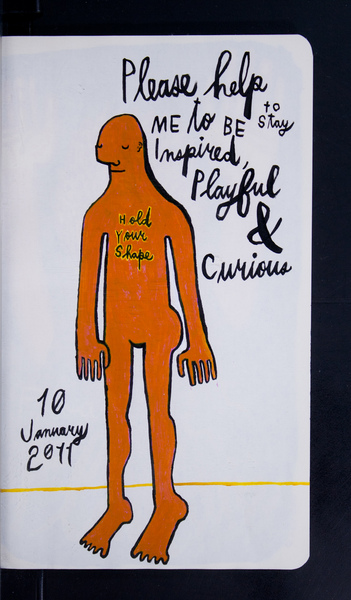 Please help
ME to BE to Stay
Inspired,
Playful
&
Curious
Hold
Your
Shape
10
January
2011